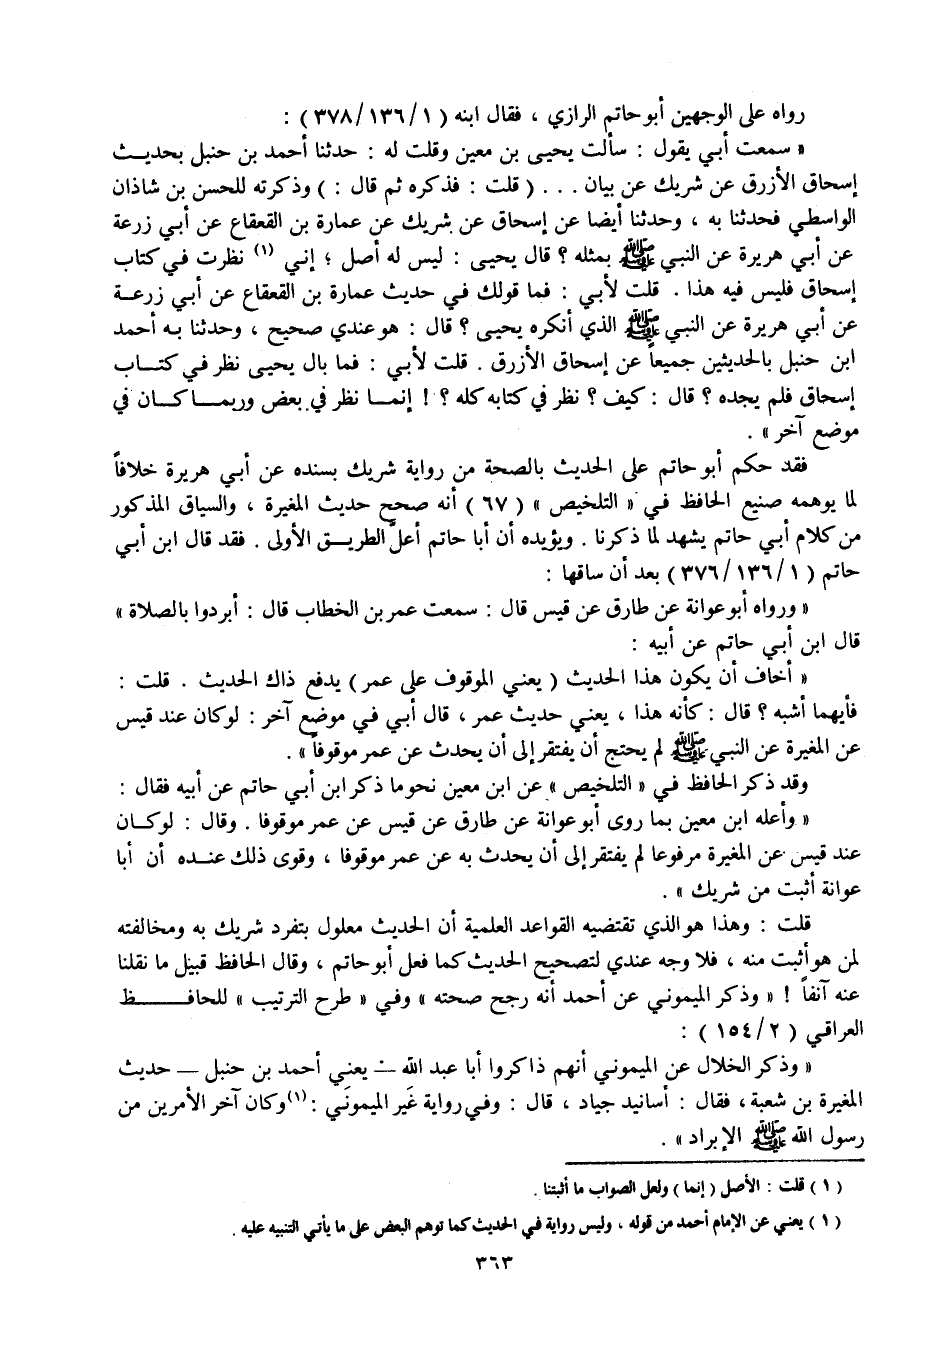 رواه على الوجهين أبو حاتم الرازي ، فقال ابنه ( ١/١٣٦/٣٧٨ ) :
« سمعت أبي يقول : سألت يحيى بن معين وقلت له : حدثنا أحمد بن حنبل بحديث
إسحاق الأزرق عن شريك عن بيان . . . ( قلت : فذكره ثم قال : ) وذكرته للحسن بن شاذان
الواسطي فحدثنا به ، وحدثنا أيضا عن إسحاق عن شريك عن عمارة بن القعقاع عن أبي زرعة
عن أبي هريرة عن النبي ﷺ بمثله ؟ قال يحيى : ليس له أصل ؛ إني (١) نظرت في كتاب
إسحاق فليس فيه هذا . قلت لأبي : فما قولك في حديث عمارة بن القعقاع عن أبي زرعة
عن أبي هريرة عن النبي ﷺ الذي أنكره يحيى ؟ قال : هو عندي صحيح ، وحدثنا به أحمد
ابن حنبل بالحديثين جميعاً عن إسحاق الأزرق . قلت لأبي : فما بال يحيى نظر في كتاب
إسحاق فلم يجده ؟ قال : كيف ؟ نظر في كتابه كله ؟ ! إنما نظر في بعض وربما كان في
موضع آخر » .
فقد حكم أبو حاتم على الحديث بالصحة من رواية شريك بسنده عن أبي هريرة خلافاً
لما يوهمه صنيع الحافظ في « التلخيص » ( ٦٧ ) أنه صحح حديث المغيرة ، والسياق المذكور
من كلام أبي حاتم يشهد لما ذكرنا . ويؤيده أن أبا حاتم أعلّ الطريق الأولى . فقد قال ابن أبي
حاتم ( ١/١٣٦/٣٧٦ ) بعد أن ساقها :
« ورواه أبو عوانة عن طارق عن قيس قال : سمعت عمر بن الخطاب قال : أبردوا بالصلاة »
قال ابن أبي حاتم عن أبيه :
« أخاف أن يكون هذا الحديث ( يعني الموقوف على عمر ) يدفع ذاك الحديث . قلت :
فأيهما أشبه ؟ قال : كأنه هذا ، يعني حديث عمر ، قال أبي في موضع آخر : لو كان عند قيس
عن المغيرة عن النبي ﷺ لم يحتج أن يفتقر إلى أن يحدث عن عمر موقوفاً » .
وقد ذكر الحافظ في « التلخيص » عن ابن معين نحو ما ذكر ابن أبي حاتم عن أبيه فقال :
« وأعله ابن معين بما روى أبو عوانة عن طارق عن قيس عن عمر موقوفا . وقال : لو كان
عند قيس عن المغيرة مرفوعا لم يفتقر إلى أن يحدث به عن عمر موقوفا ، وقوى ذلك عنده أن أبا
عوانة أثبت من شريك » .
قلت : وهذا هو الذي تقتضيه القواعد العلمية أن الحديث معلول بتفرد شريك به ومخالفته
لمن هو أثبت منه ، فلا وجه عندي لتصحيح الحديث كما فعل أبو حاتم ، وقال الحافظ قبيل ما نقلنا
عنه آنفاً ! « وذكر الميموني عن أحمد أنه رجح صحته » وفي « طرح الترتيب » للحافظ
العراقي ( ٢/١٥٤ ) :
« وذكر الخلال عن الميموني أنهم ذاكروا أبا عبد الله — يعني أحمد بن حنبل — حديث
المغيرة بن شعبة ، فقال : أسانيد جياد ، قال : وفي رواية غَير الميموني : (١) وكان آخر الأمرين من
رسول الله ﷺ الإبراد » .
( ١ ) قلت : الأصل ( إنما ) ولعل الصواب ما أثبتنا .
( ١ ) يعني عن الإمام أحمد من قوله ، وليس رواية في الحديث كما توهم البعض على ما يأتي التنبيه عليه .
٣٦٣